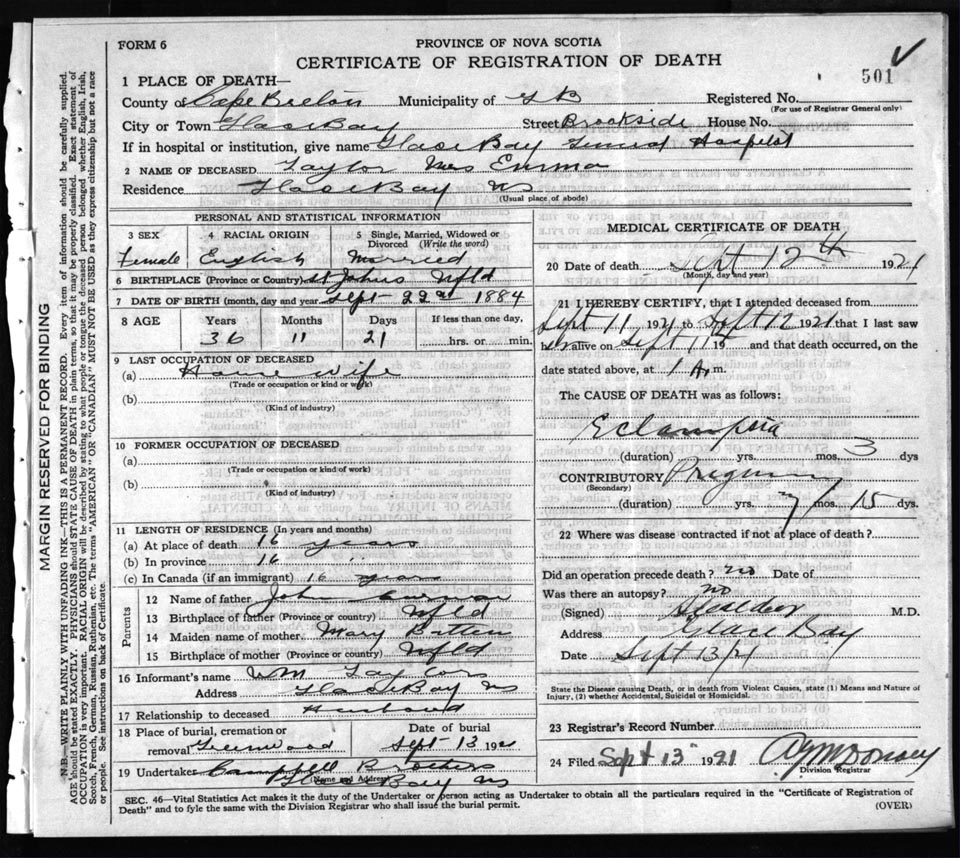 FORM 6
PROVINCE OF NOVA SCOTIA
CERTIFICATE OF REGISTRATION OF DEATH
501
1 PLACE OF DEATH—
County of Cape Breton Municipality of G B Registered No.
(For use of Registrar General only)
City or Town Glace Bay Street Brookside House No.
If in hospital or institution, give name Glace Bay General Hospital
2 NAME OF DECEASED Taylor Mrs Emma
Residence Glace Bay NS
(Usual place of abode)
PERSONAL AND STATISTICAL INFORMATION
3 SEX 4 RACIAL ORIGIN 5 Single, Married, Widowed or Divorced (Write the word)
Female English Married
6 BIRTHPLACE (Province or Country) St Johns Nfld
7 DATE OF BIRTH (month, day and year Sept 22nd 1884
8 AGE Years Months Days If less than one day,
36 11 21 hrs. or min.
9 LAST OCCUPATION OF DECEASED
(a) House wife
(Trade or occupation or kind of work)
(b)
(Kind of industry)
10 FORMER OCCUPATION OF DECEASED
(a)
(Trade or occupation or kind of work)
(b)
(Kind of industry)
11 LENGTH OF RESIDENCE (In years and months)
(a) At place of death 16 years
(b) In province 16 "
(c) In Canada (if an immigrant) 16 years
Parents
12 Name of father John
13 Birthplace of father (Province or country) Nfld
14 Maiden name of mother Mary
15 Birthplace of mother (Province or country) Nfld
16 Informant's name Wm Taylor
Address Glace Bay NS
17 Relationship to deceased Husband
18 Place of burial, cremation or removal Greenwood
Date of burial Sept 13 1921
19 Undertaker Campbell Brothers
(Name and Address)
Glace Bay NS
MEDICAL CERTIFICATE OF DEATH
20 Date of death Sept 12th 1921
(Month, day and year)
21 I HEREBY CERTIFY, that I attended deceased from
Sept 11 1921 to Sept 12 1921 that I last saw
her alive on Sept 11th 19 and that death occurred, on
date stated above, at 1 A m.
The CAUSE OF DEATH was as follows:
Eclampsia
(duration) yrs. mos. 3 dys
CONTRIBUTORY
(Secondary)
(duration) yrs. 7 mos. 15 dys.
22 Where was disease contracted if not at place of death?
Did an operation precede death? no Date of
Was there an autopsy? no
(Signed) M.D.
Address Glace Bay
Date Sept 13/21
State the Disease causing Death, or in death from Violent Causes, state (1) Means and Nature of Injury, (2) whether Accidental, Suicidal or Homicidal.
23 Registrar's Record Number
24 Filed Sept 13" 1921
Division Registrar
SEC. 46—Vital Statistics Act makes it the duty of the Undertaker or person acting as Undertaker to obtain all the particulars required in the "Certificate of Registration of
Death" and to fyle the same with the Division Registrar who shall issue the burial permit.
(OVER)
MARGIN RESERVED FOR BINDING
N.B.—WRITE PLAINLY WITH UNFADING INK—THIS IS A PERMANENT RECORD. Every item of information should be carefully supplied.
AGE should be stated EXACTLY. PHYSICIANS should STATE CAUSE OF DEATH in plain terms, so that it may be properly classified. Exact statement of
OCCUPATION is very important. RACIAL ORIGIN will be described by stating to what people or tongue the deceased person belonged, whether English, Irish,
Scotch, French, German, Russian, Ruthenian, etc. The terms "AMERICAN" OR "CANADIAN" MUST NOT BE USED as they express citizenship but not a race
or people. See instructions on back of Certificate.